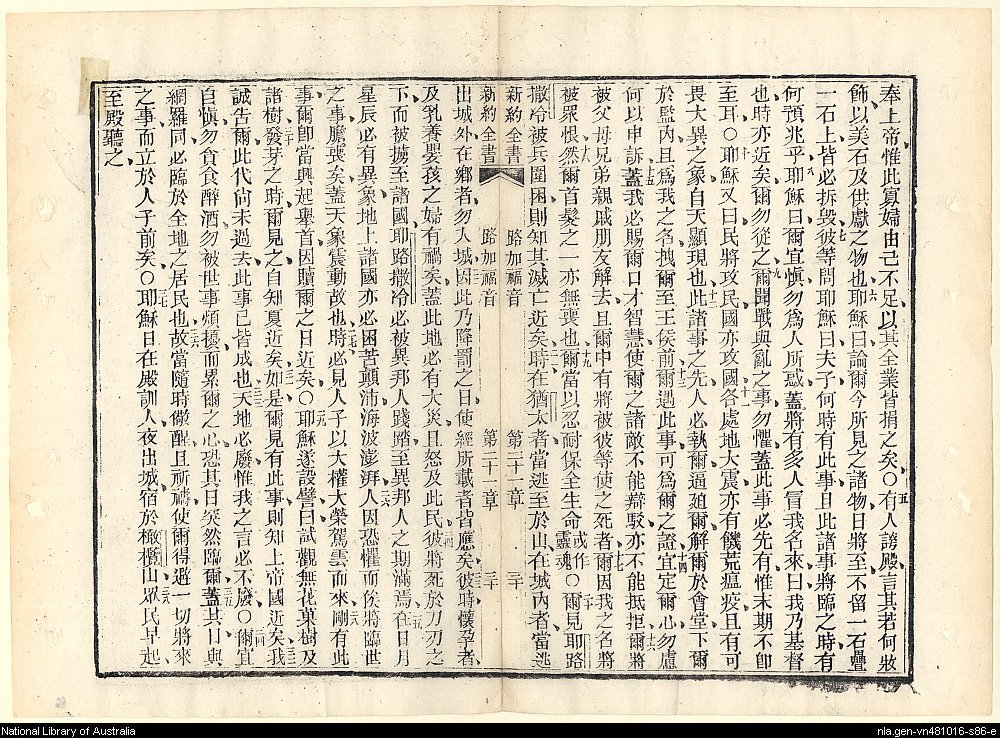 奉上帝惟此寡婦由己不足以其全業皆捐之矣○有人謗殿言其若何妝
飾以美石及供獻之物也耶穌曰論爾今所見之諸物日將至不留一石疊
一石上皆必拆毀彼等問耶穌曰夫子何時有此事且此諸事將臨之時有
何預兆乎耶穌曰爾宜愼勿爲人所惑蓋將有多人冒我名來曰我乃基督
也時亦近矣爾勿從之爾聞戰與亂之事勿懼蓋此事必先有惟末期不卽
至耳○耶穌又曰民將攻民國亦攻國各處地大震亦有饑荒瘟疫且有可
畏大異之象自天顯現也此諸事之先人必執爾逼廹爾解爾於會堂下爾
於監內且爲我之名拽爾至王侯前爾遇此事可爲爾之證宜定爾心勿慮
何以申訴蓋我必賜爾口才智慧使爾之諸敵不能辯駁亦不能抵拒爾將
被父母兄弟親戚朋友解去且爾中有將被彼等使之死者爾因我之名將
被衆恨然爾首髮之一亦無喪也爾當以忍耐保全生命或作靈魂○爾見耶路
撒冷被兵圍困則知其滅亡近矣時在猶太者當逃至於山在城內者當逃
新約全書 路加福音 第二十一章 三十
新約全書 路加福音 第二十一章 三十
出城外在鄉者勿入城因此乃降罰之日使經所載者皆應矣彼時懷孕者
及乳養嬰孩之婦有禍矣蓋此地必有大災且怒及此民彼將死於刀刃之
下而被擄至諸國耶路撒冷必被異邦人踐踏至異邦人之期滿焉在日月
星辰必有異象地上諸國亦必困苦顛沛海波澎湃人因恐懼而俟將臨世
之事膽喪矣蓋天象震動故也時必見人子以大權大榮駕雲而來剛有此
事爾卽當興起舉首因贖爾之日近矣○耶穌遂設譬曰試觀無花菓樹及
諸樹發芽之時爾見之自知夏近矣如是爾見有此事則知上帝國近矣我
誠告爾此代尙未過去此事已皆成也天地必廢惟我之言必不廢○爾宜
自愼勿貪食醉酒勿被世事煩擾而累爾之心恐其日突然臨爾蓋其日與
網羅同必臨於全地之居民也故當隨時儆醒且祈禱使爾得避一切將來
之事而立於人子前矣○耶穌日在殿訓人夜出城宿於橄欖山衆民早起
至殿聽之
National Library of Australia
nla.gen-vn481016-s86-e